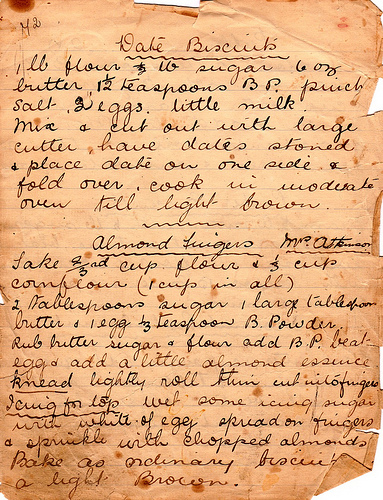 42
Date Biscuits
1 lb flour ½ lb sugar 6 oz
butter, 1½ teaspoons B.P. pinch
salt, 3 eggs, little milk.
Mix & cut out with large
cutter, have dates stoned
& place date on one side &
fold over, cook in moderate
oven till light brown.
Almond Fingers Mrs Atkinson
Take ⅔rd cup flour & ⅓ cup
cornflour (1 cup in all)
2 tablespoons sugar 1 large tablespoon
butter & 1 egg ½ teaspoon B. Powder.
Rub butter sugar & flour add B.P. beat
egg & add a little almond essence
Knead lightly roll thin cut into fingers
Icing for top wet some icing sugar
with white of egg spread on fingers
& sprinkle with chopped almonds
Bake as ordinary biscuit
a light Brown.